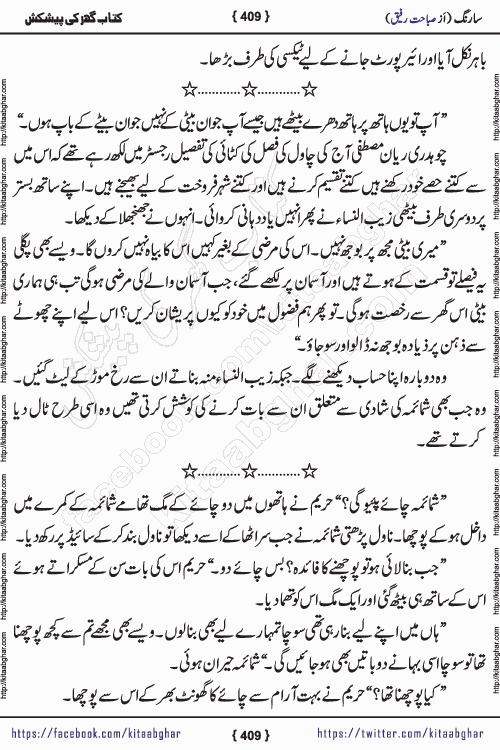 سارنگ (از صباحت رفیق)
{ 409 }
کتاب گھر کی پیشکش
باہر نکل آیا اور ائیر پورٹ جانے کے لیے ٹیکسی کی طرف بڑھا۔
☆............☆............☆
”آپ تو یوں ہاتھ پر ہاتھ دھرے بیٹھے ہیں جیسے آپ جوان بیٹی کے نہیں جوان بیٹے کے باپ ہوں۔“
چوہدری ریان مصطفی آج کی چاول کی فصل کی کٹائی کی تفصیل رجسٹر میں لکھ رہے تھے کہ اس میں
سے کتنے حصے خود رکھنے ہیں کتنے تقسیم کرنے ہیں اور کتنے شہر فروخت کے لیے بھیجنے ہیں۔ اپنے ساتھ بستر
پر دوسری طرف بیٹھی زیب النساء نے پھر انہیں یاد دہانی کروائی۔ انہوں نے جھنجھلا کے دیکھا۔
”میری بیٹی مجھ پر بوجھ نہیں۔ اس کی مرضی کے بغیر کہیں اس کا بیاہ نہیں کروں گا۔ ویسے بھی پگلی
یہ فیصلے تو قسمت کے ہوتے ہیں اور آسمان پر لکھے گئے، جب آسمان والے کی مرضی ہوگی تب ہی ہماری
بیٹی اس گھر سے رخصت ہو گی۔ تو پھر ہم فضول میں خود کو کیوں پریشان کریں؟ اس لیے اپنے چھوٹے
سے ذہن پر ذیادہ بوجھ نہ ڈالو اور سو جاؤ۔“
وہ دوبارہ اپنا حساب دیکھنے لگے۔ جبکہ زیب النساء منہ بناتے ان سے رخ موڑ کے لیٹ گئیں۔
وہ جب بھی شائمہ کی شادی سے متعلق ان سے بات کرنے کی کوشش کرتی تھیں وہ اسی طرح ٹال دیا
کرتے تھے۔
☆............☆............☆
”شائمہ چائے پئیو گی؟“ حریم نے ہاتھوں میں دو چائے کے مگ تھامے شائمہ کے کمرے میں
داخل ہو کے پوچھا۔ ناول پڑھتی شائمہ نے جب سر اٹھا کے اسے دیکھا تو ناول بند کر کے سائیڈ پر رکھ دیا۔
”جب بنا لائی ہو تو پوچھنے کا فائدہ؟ بس چائے دو۔“ حریم اس کی بات سن کے مسکراتے ہوئے
اس کے ساتھ ہی بیٹھ گئی اور ایک مگ اس کو تھما دیا۔
”ہاں میں اپنے لیے بنا رہی تھی سوچا تمہارے لیے بھی بنا لوں۔ ویسے بھی مجھے تم سے کچھ پوچھنا
تھا تو سوچا اسی بہانے دو باتیں بھی ہو جائیں گی۔“ شائمہ حیران ہوئی۔
”کیا پوچھنا تھا؟“ حریم نے بہت آرام سے چائے کا گھونٹ بھر کے اس سے پوچھا۔
https://facebook.com/kitaabghar
{ 409 }
https://twitter.com/kitaabghar
http://kitaabghar.com